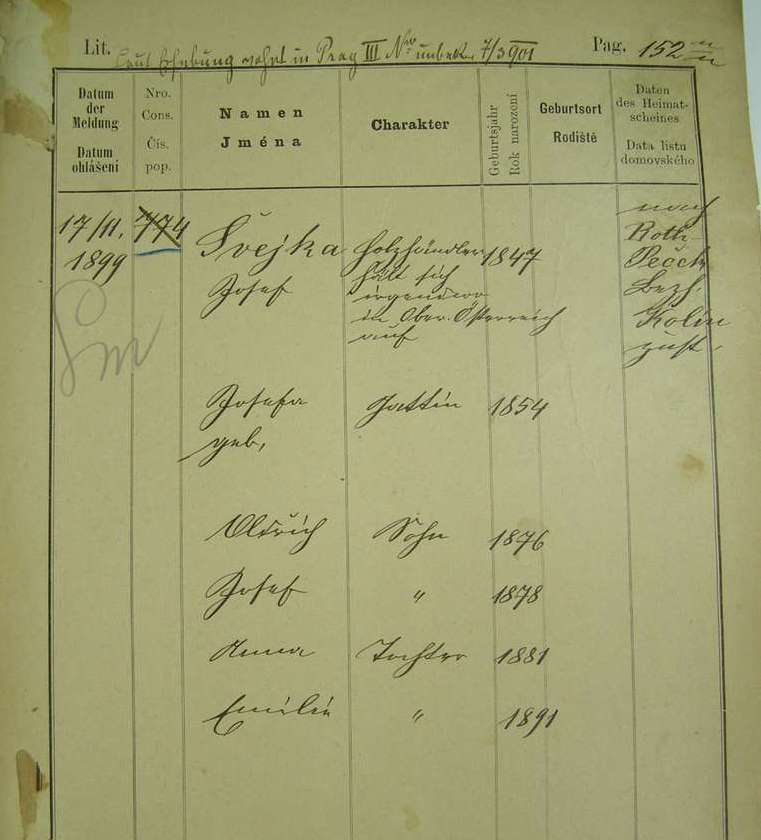 Lit. Laut Erhebung wohnt in Prag III Nro unbek. 7/3 901 Pag. 152
Datum der Meldung
Datum ohlášení
Nro. Cons.
Čís. pop.
Namen
Jména
Charakter
Geburtsjahr
Rok narození
Geburtsort
Rodiště
Daten des Heimat-scheines
Data listu domovského
17/11. 774 Švejka Holzhändler 1847 nach
1899 Josef hält sich Roth
irgendwo Pečck
in Ober. Österreich Bezh.
auf Kolin
zust.
Josefa Gattin 1854
geb.
Oldřich Sohn 1876
Josef " 1878
Anna Tochter 1881
Emilie " 1891